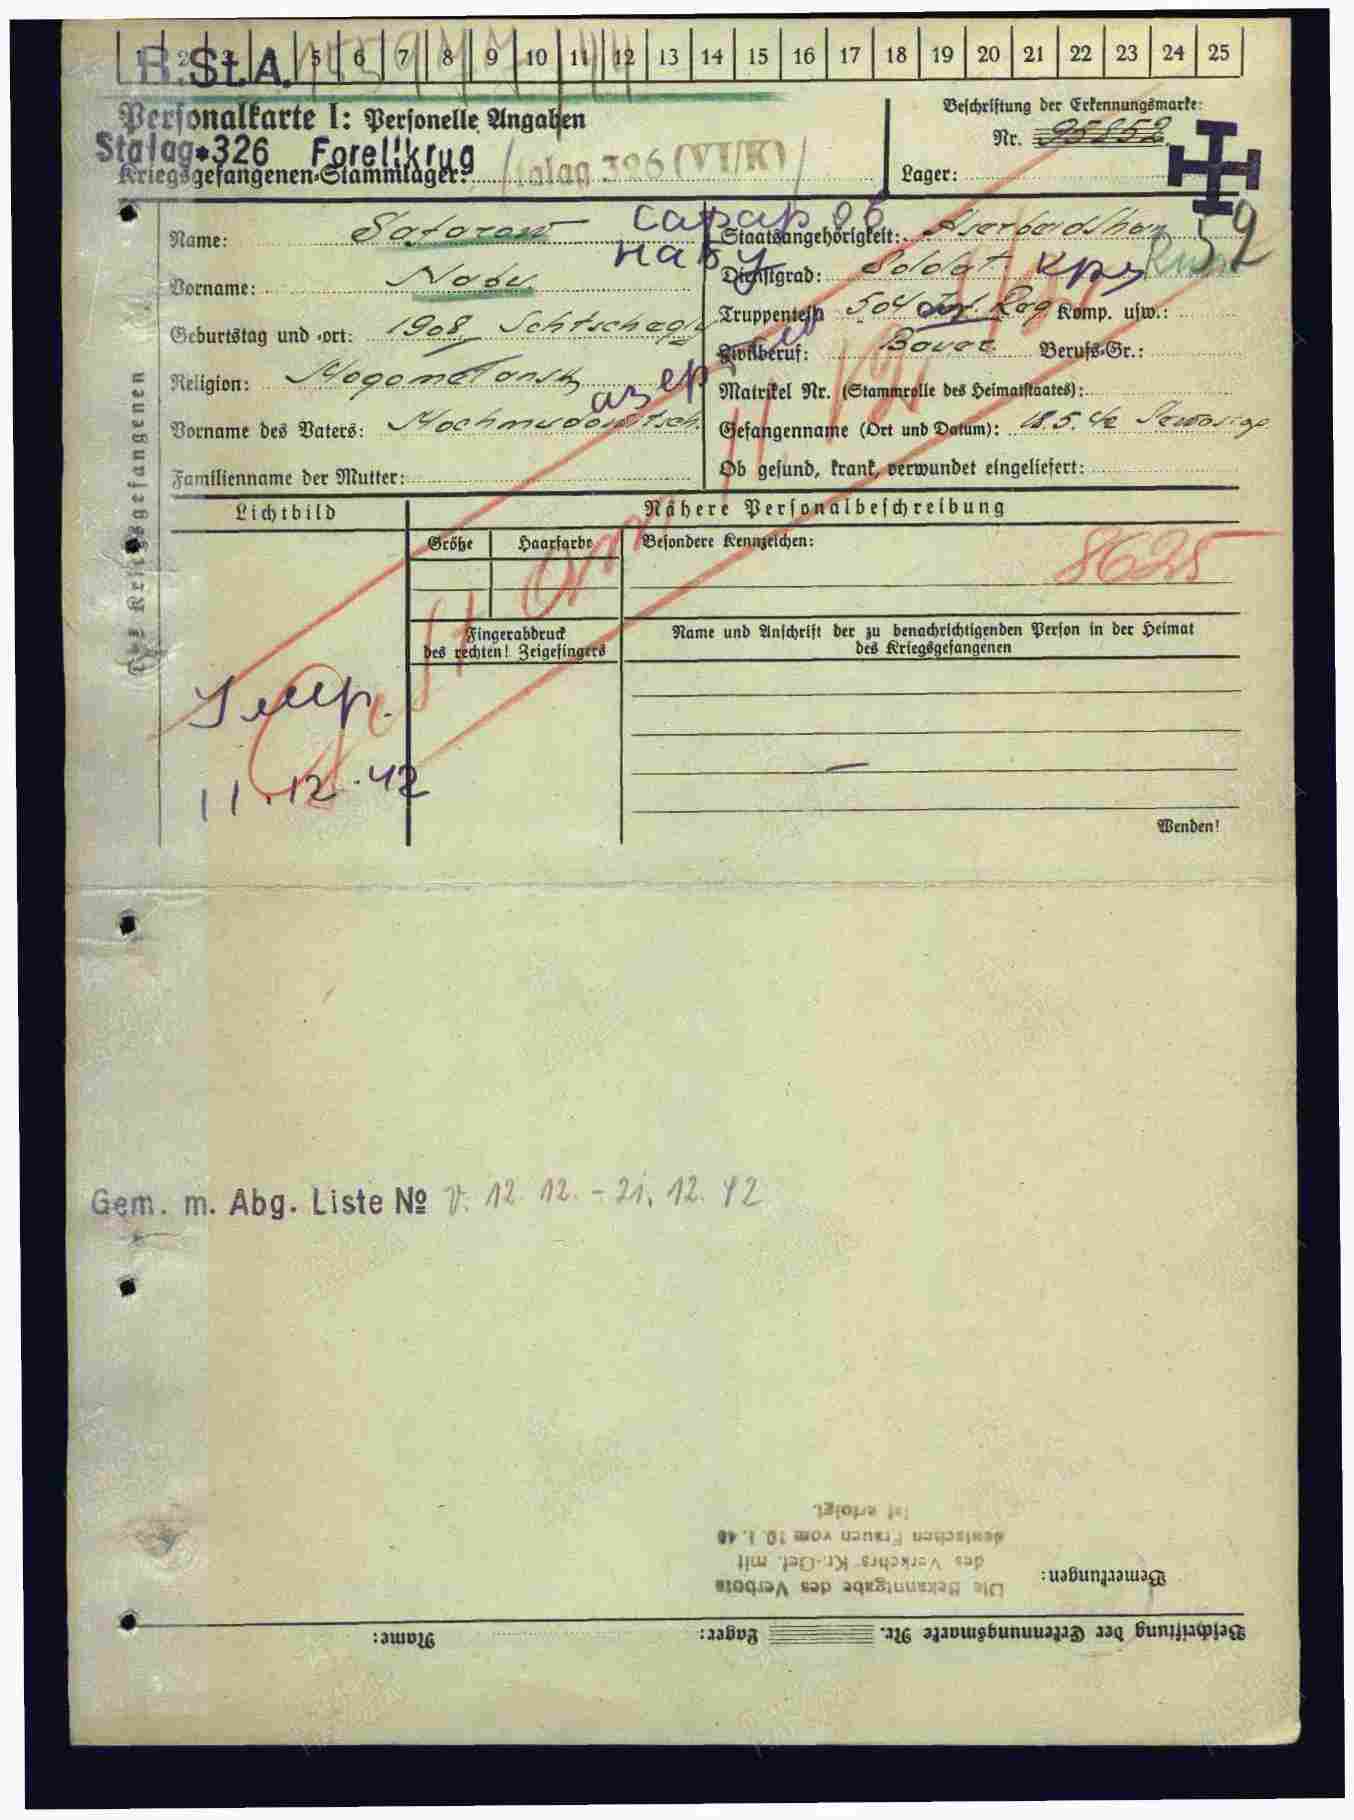 1 2 3 5 6 7 8 9 10 11 12 13 14 15 16 17 18 19 20 21 22 23 24 25
B.St.A.
Personalkarte I: Personelle Angaben
Beschriftung der Erkennungsmarke:
Nr. 95852
Stalag 326 Forellkrug
Kriegsgefangenen-Stammlager: Stalag 326 (VI/K)
Lager:
52
Des Kriegsgefangenen
Name: Satarow
Vorname: Nabu
Geburtstag und -ort: 1908
Religion:
Vorname des Vaters:
Familienname der Mutter:
набу
Staatsangehörigkeit: Aserbeidshan
Dienstgrad: Soldat
Truppenteil: 504 Inf. Reg Komp. usw.:
Zivilberuf: Bauer Berufs-Gr.:
Matrikel Nr. (Stammrolle des Heimatstaates):
Gefangennahme (Ort und Datum): 18.5.42
Ob gesund, krank, verwundet eingeliefert:
Lichtbild
Nähere Personalbeschreibung
Größe
Haarfarbe
Besondere Kennzeichen:
8625
Fingerabdruck
des rechten! Zeigefingers
Name und Anschrift der zu benachrichtigenden Person in der Heimat
des Kriegsgefangenen
Умер.
11.12.42
Wenden!
Gem. m. Abg. Liste № v. 12.12. - 21.12.42
Beschriftung der Erkennungsmarke Nr. Lager: Name:
Bemerkungen:
Die Bekanntgabe des Verbots
des Verkehrs Kr.-Gef. mit
deutschen Frauen vom 10.1.40
ist erfolgt.